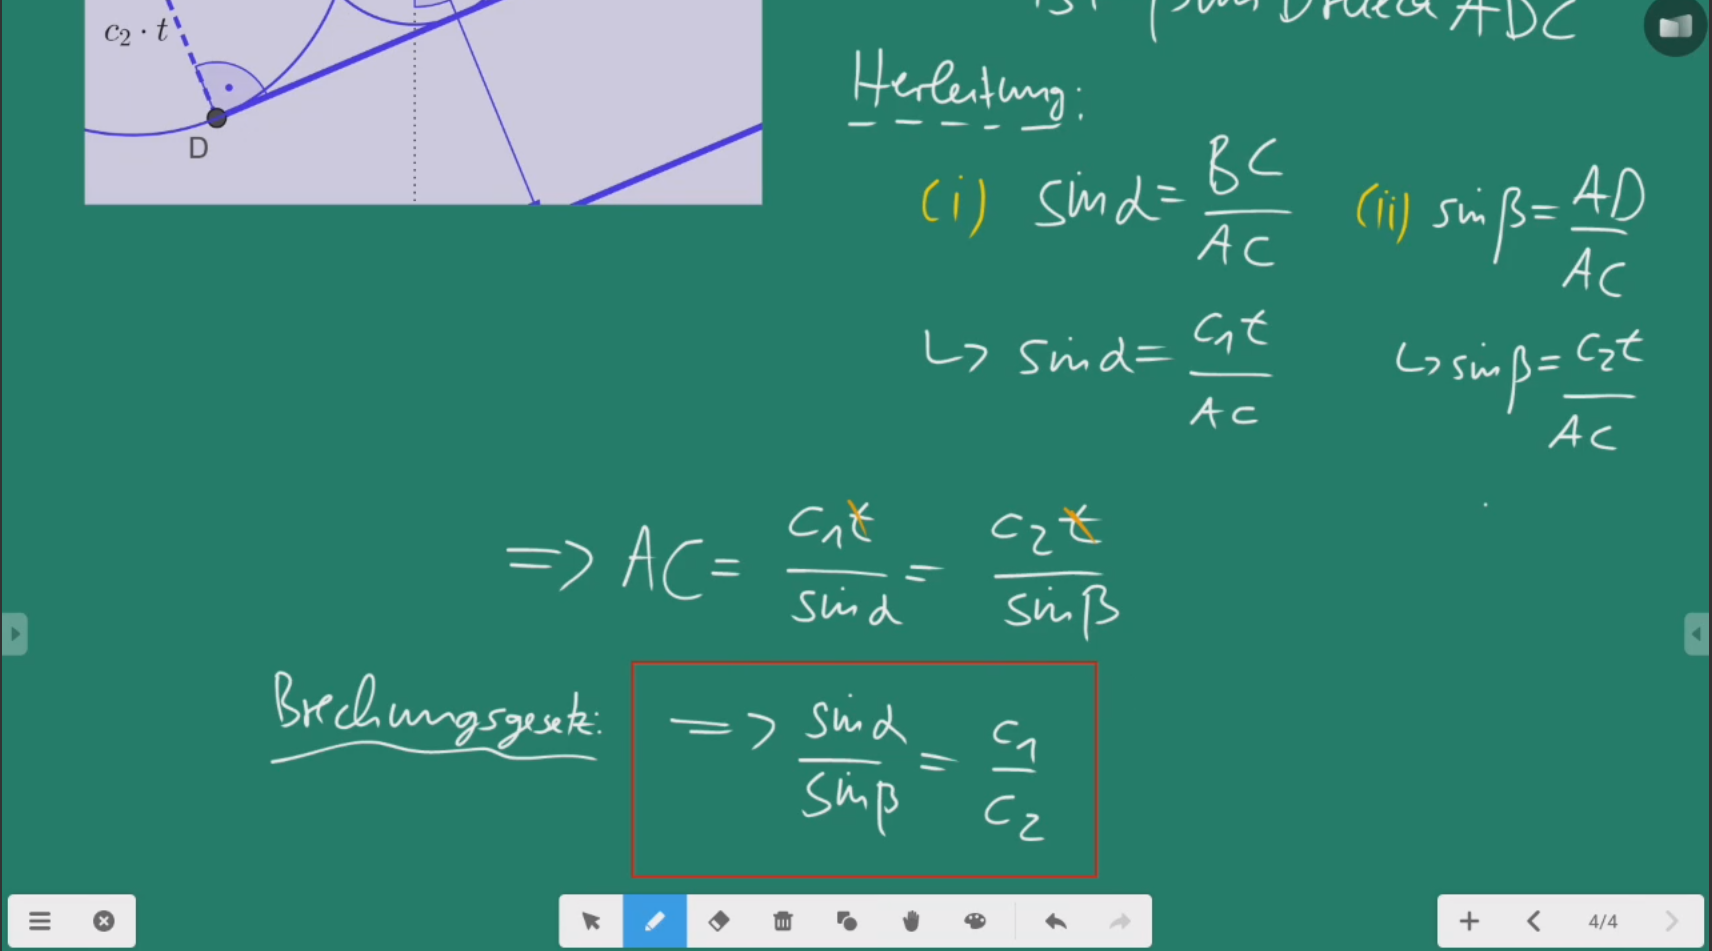 c₂ · t
D
Dreieck ADC
Herleitung:
(i) sin α = BC / AC (ii) sin β = AD / AC
↳ sin α = c₁t / AC ↳ sin β = c₂t / AC
=> AC = c₁t / sin α = c₂t / sin β
Brechungsgesetz: => sin α / sin β = c₁ / c₂
4/4